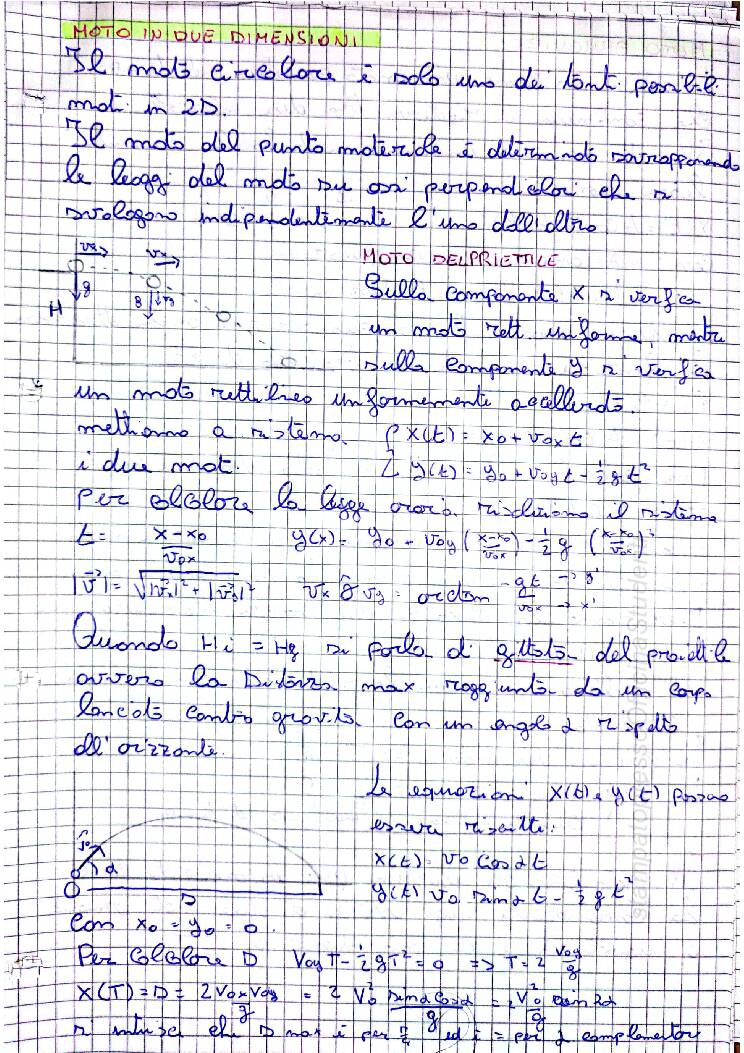 MOTO IN DUE DIMENSIONI
Il moto circolare è solo uno dei tanti possibili
moti in 2D.
Il moto del punto materiale è determinato sovrapponendo
le leggi del moto su assi perpendicolari che si
svolgono indipendentemente l'uno dall'altro
MOTO DEL PRIETTILE
Sulla componente x si verfica
un moto rett. uniforme, mentre
sulla componente y si verfica
un moto rettilineo unformemente accellerato.
mettiamo a sistema x(t) = x0 + v0x t
i due moti. y(t) = y0 + v0y t - 1/2 g t²
Per calcolare la legge oraria risolviamo il sistema
t = x-x0 / v0x y(x) = y0 + v0y (x-x0 / v0x) - 1/2 g (x-x0 / v0x)²
|v| = √|vx|² + |vy|² vx vy = arctan -gt / v0x
Quando Hi = Hf si parla di gittata del proiettile
ovvero la Distanza max raggiunta da un corpo
lanciato contro gravità con un angolo α rispetto
all'orizzonte.
Le equazioni x(t) e y(t) possono
essere riscritte:
x(t) = v0 cos α t
y(t) v0 sin α t - 1/2 g t²
con x0 = y0 = 0.
Per calcolare D V0y T - 1/2 g T² = 0 => T = 2 V0y / g
X(T) = D = 2 V0x V0y / g = 2 V0² sin α cos α / g = V0² / g sin 2α
si intuisce che D max è per π/4 ed è = per α complementari